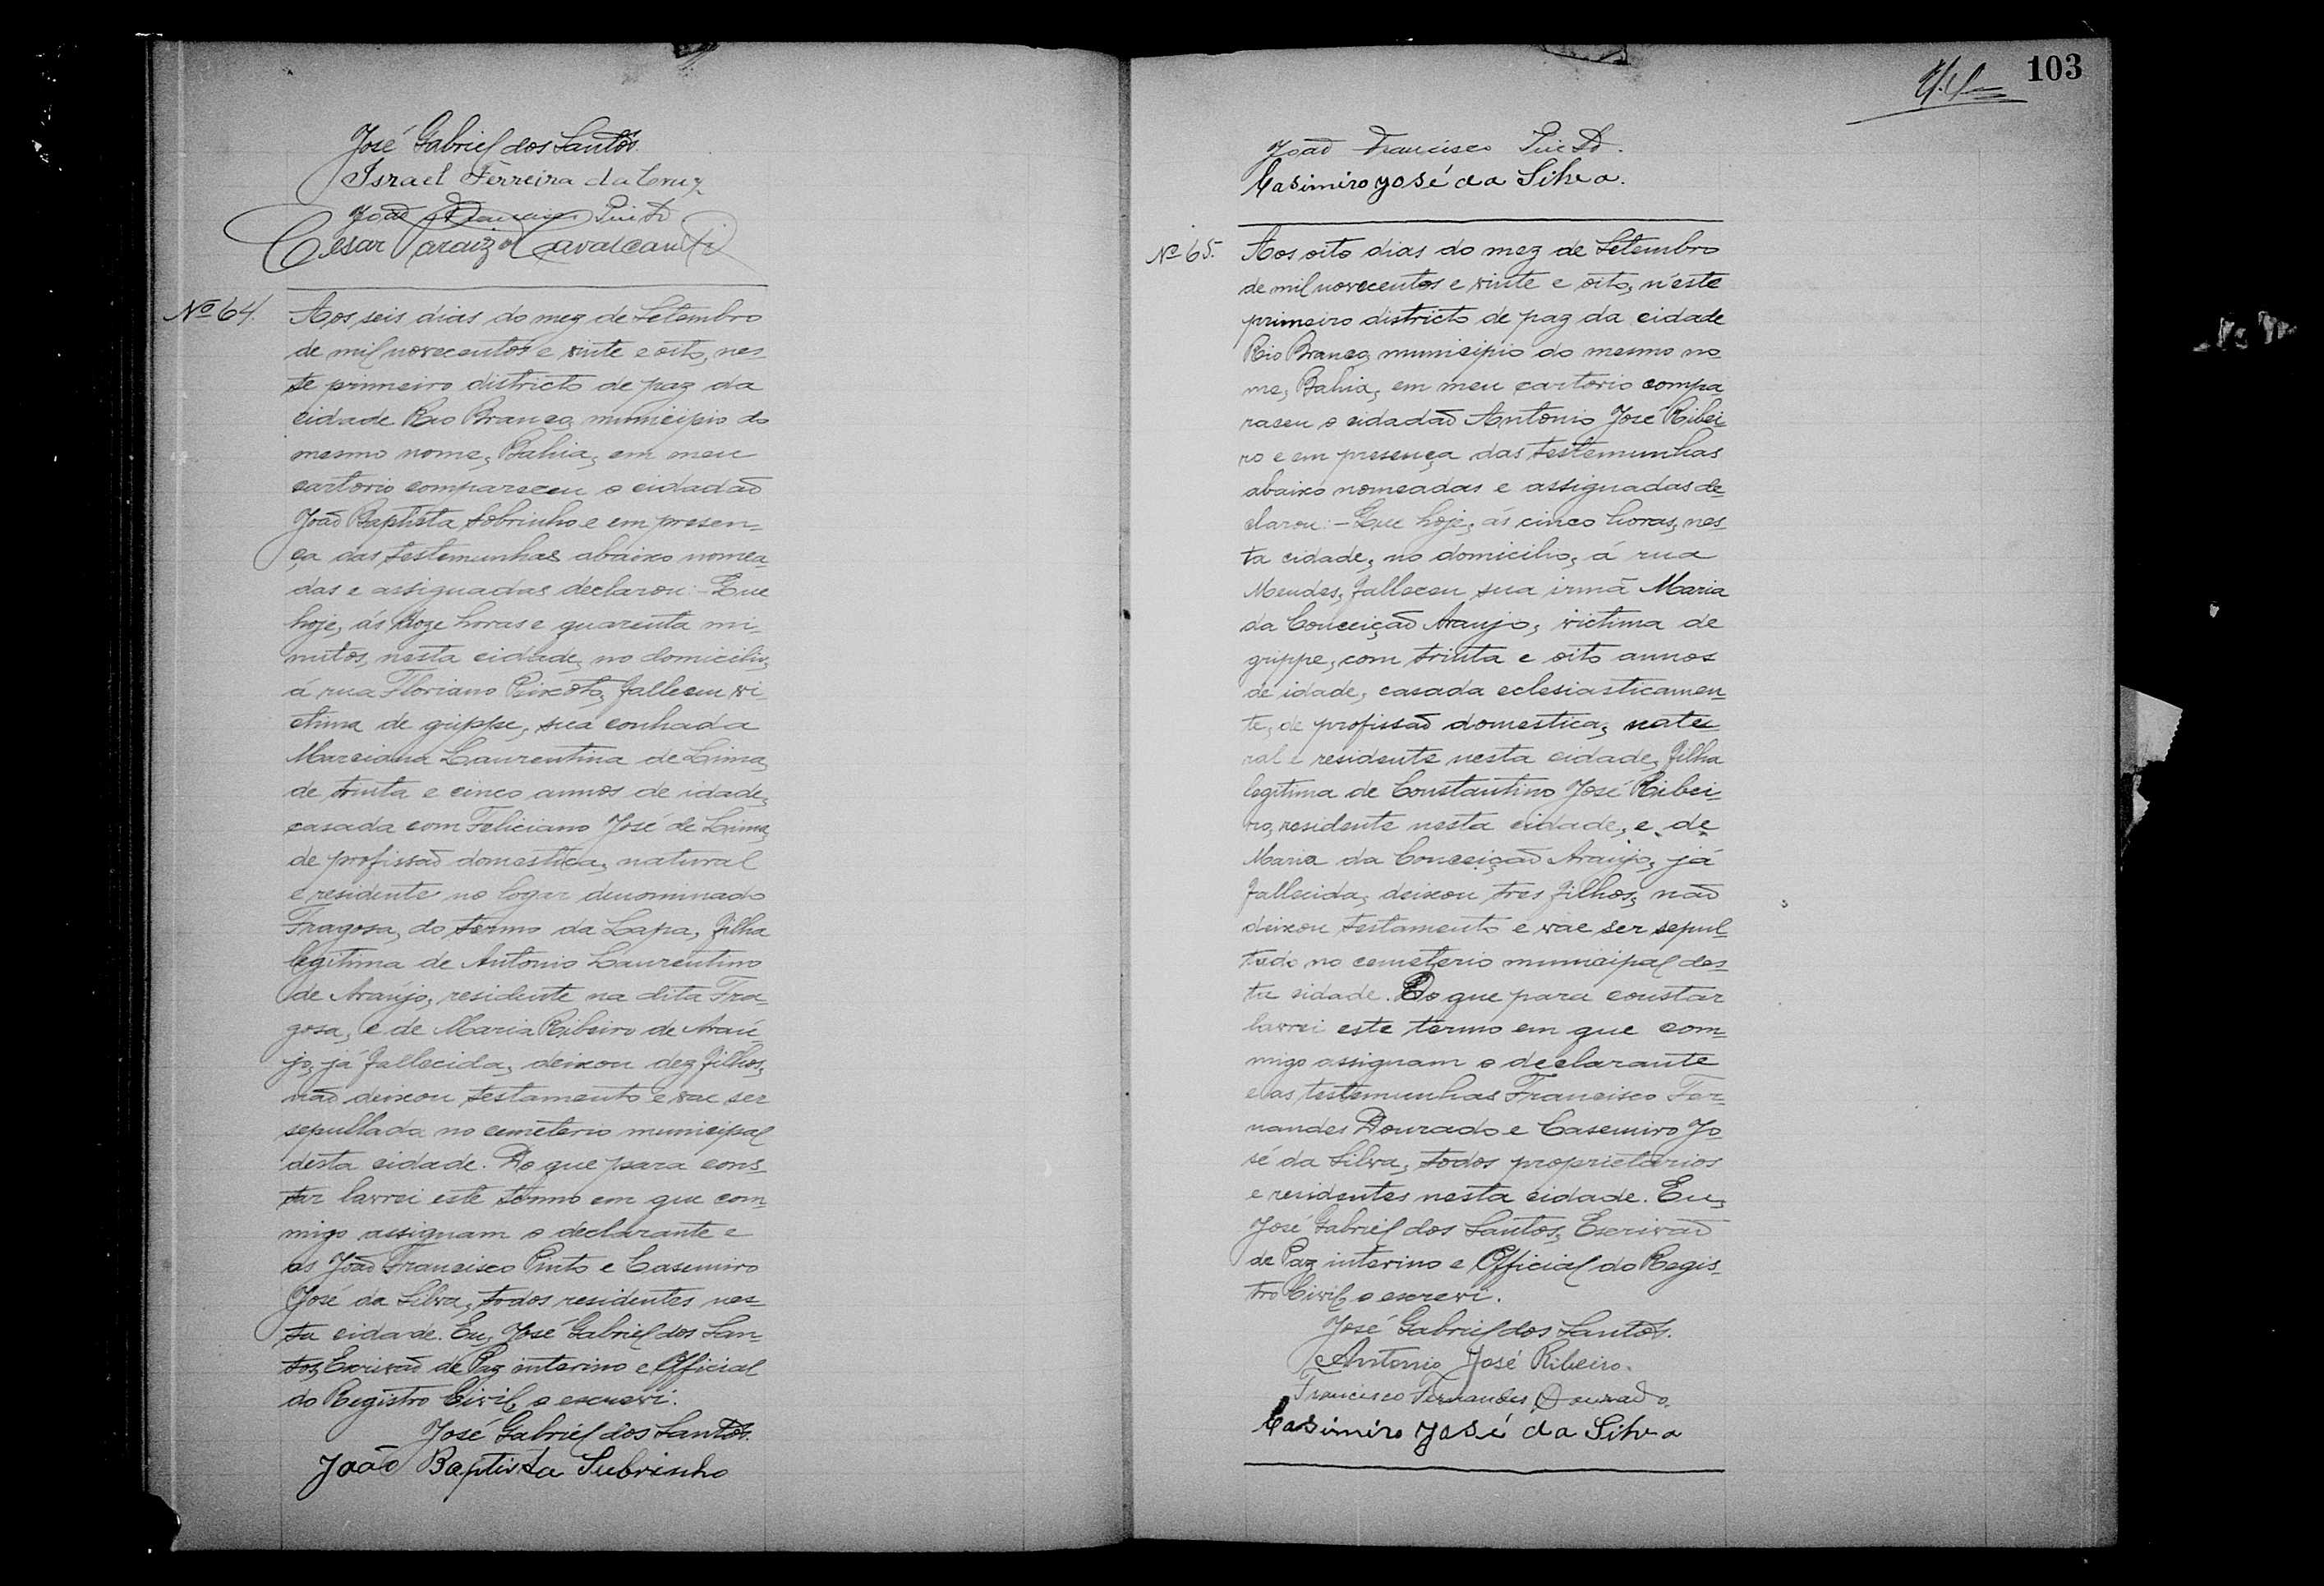 José Gabriel dos Santos.
Israel Ferreira da Cruz
João Francisco Pinto
Cesar Paraizo Cavalcanti
Nº 64.
Aos seis dias do mez de Setembro
de mil novecentos e vinte e oito, nes-
te primeiro districto de paz da
cidade Rio Branco, municipio do
mesmo nome, Bahia, em meu
cartorio compareceu o cidadão
João Baptista Sobrinho e em presen-
ça das testemunhas abaixo nomea-
das e assignadas declarou:- Que
hoje, ás doze horas e quarenta mi-
nutos, nesta cidade, no domicilio,
á rua Floriano Peixoto, falleceu vi
ctima de grippe, sua conhada
Marciana Laurentina de Lima,
de trinta e cinco annos de idade,
casada com Feliciano José de Lima,
de profissão domestica, natural
e residente no logar denominado
Fragosa, do termo da Lapa, filha
legitima de Antonio Laurentino
de Araújo, residente na dita Fra-
gosa, e de Maria Ribeiro de Araú-
jo, já fallecida, deixou dez filhos,
não deixou testamento e vae ser
sepultada no cemeterio municipal
desta cidade. Do que para cons-
tar lavrei este termo em que com-
migo assignam o declarante e
as João Francisco Pinto e Casemiro
José da Silva, todos residentes nes-
ta cidade. Eu, José Gabriel dos San-
tos, Escrivão de Paz interino e Official
do Registro Civil, o escrevi.
José Gabriel dos Santos.
João Baptista Subrinho
103
João Francisco Pinto.
Casimiro José da Silva.
Nº 65.
Aos oito dias do mez de Setembro
de mil novecentos e vinte e oito, n'este
primeiro districto de paz da cidade
Rio Branco, municipio do mesmo no-
me, Bahia, em meu cartorio compa
raseu o cidadão Antonio José Ribei
ro e em presença das testemunhas
abaixo nomeadas e assignadas de-
clarou:- Que hoje, ás cinco horas, nes-
ta cidade, no domicilio, á rua
Mendes, falleceu sua irmã Maria
da Conceição Araujo, victima de
grippe, com trinta e oito annos
de idade, casada eclesiasticamen-
te, de profissão domestica, natu
ral e residente nesta cidade, filha
legitima de Constantino José Ribei-
ro, residente nesta cidade, e de
Maria da Conceição Araujo, já
fallecida, deixou tres filhos, não
deixou testamento e vae ser sepul-
tado no cemeterio municipal des-
ta cidade. Do que para constar
lavrei este termo em que com-
migo assignam o declarante
e as testemunhas Francisco Fer-
nandes Dourado e Casemiro Jo-
sé da Silva, todos proprietarios
e residentes nesta cidade. Eu,
José Gabriel dos Santos, Escrivão
de Paz interino e Official do Regis-
tro Civil, o escrevi.
José Gabriel dos Santos.
Antonio José Ribeiro.
Francisco Fernandes Dourado.
Casimiro José da Silva